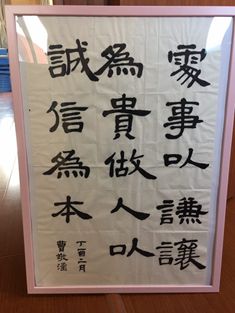 處事以謙讓
為貴做人以
誠信為本
丁酉二月
曹敬